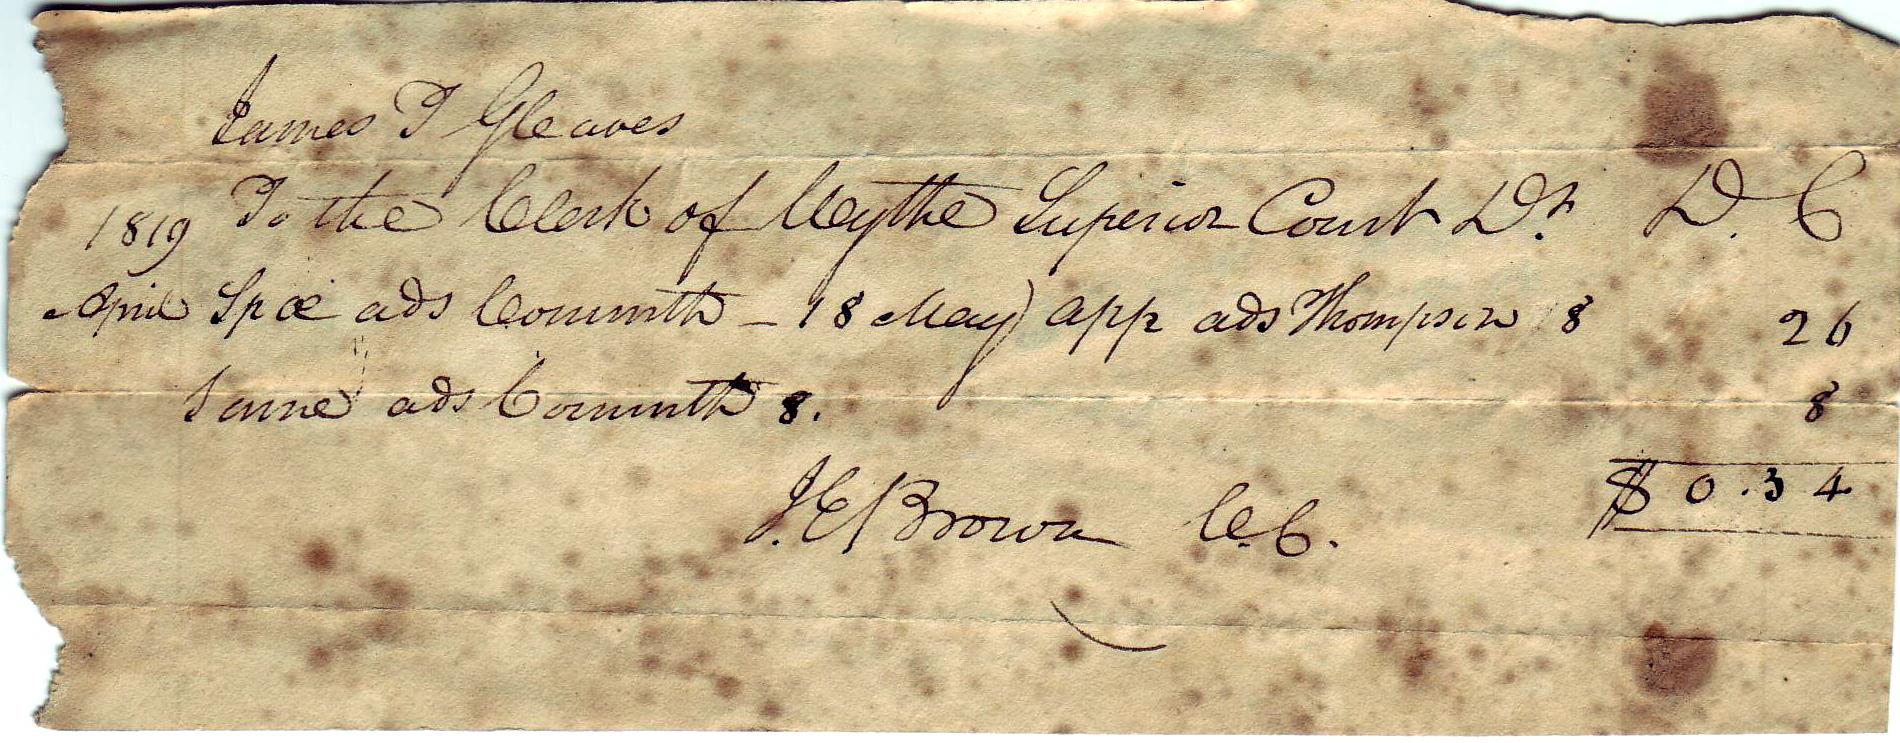 James T Gleaves
1819 To the Clerk of Wythe Superior Court Dr. D. C
April Spæ ads Commth – 18 May) app ads Thompson 8 26
Same ads Commth 8. 8
$ 0.34
J. E. Brown C. C.